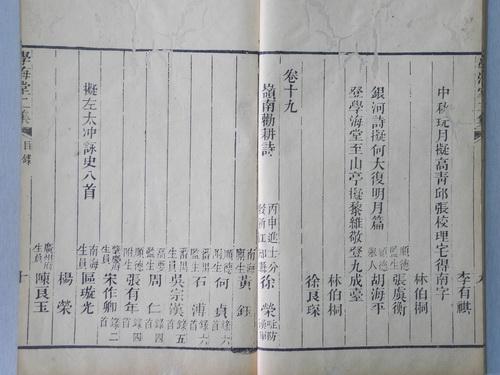 中秋玩月擬高青邱張校理宅得南字
李有祺
銀河詩擬何大復明月篇
林伯桐
順德 張廣衡
順德 胡海平
登學海堂至山亭擬黎維敬登九成臺
林伯桐
徐良琛
卷十九
嶺南勸耕詩
丙申進士分
徐榮
南海 黃鈺
順德 何貞 錄六首
番禺 監生 石溥 錄六首
番禺 吳宗漢 錄五首
周仁 錄四首
順德 監生 張有年 錄四首
肇慶府 生員 宋作卿 錄二首
擬左太冲詠史八首
南海 生員 區璇光
楊榮
廣州府 生員 陳良玉
學海堂二集
目錄
十